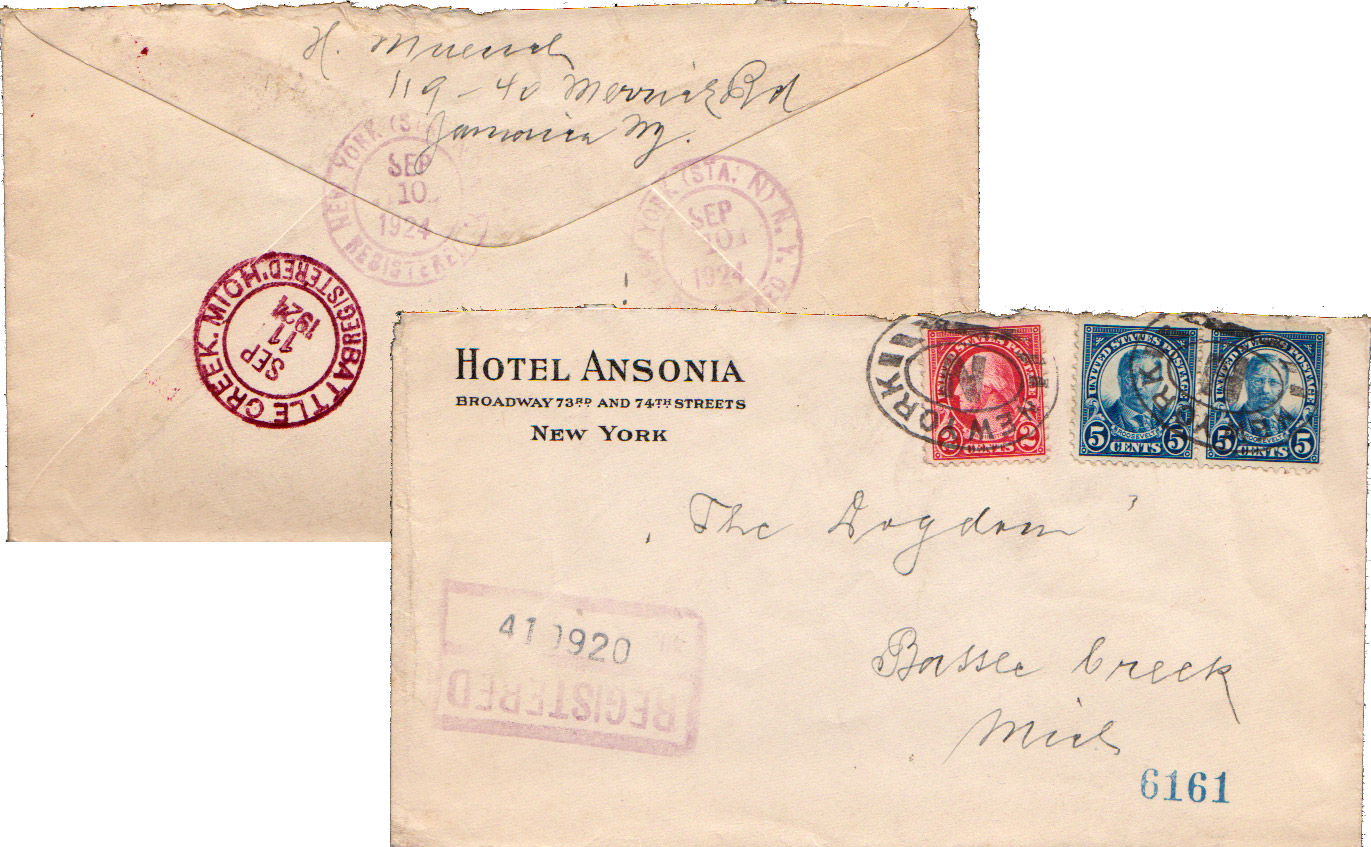 H. Muench
119-40 Merrick Rd
Jamaica Ny.
NEW YORK (S
REGISTERED
SEP
10
1924
YORK (STA. N) N. Y.
SEP
10
1924
BATTLE CREEK, MICH.
REGISTERED
SEP
11
1924
HOTEL ANSONIA
BROADWAY 73RD AND 74TH STREETS
NEW YORK
NEW YORK
UNITED STATES POSTAGE
2 CENTS 2
UNITED STATES POSTAGE
ROOSEVELT
5 CENTS 5
YORK
UNITED STATES POSTAGE
ROOSEVELT
5 CENTS 5
"The Dogdom"
Battle Creek
Mich
41 920
REGISTERED
6161